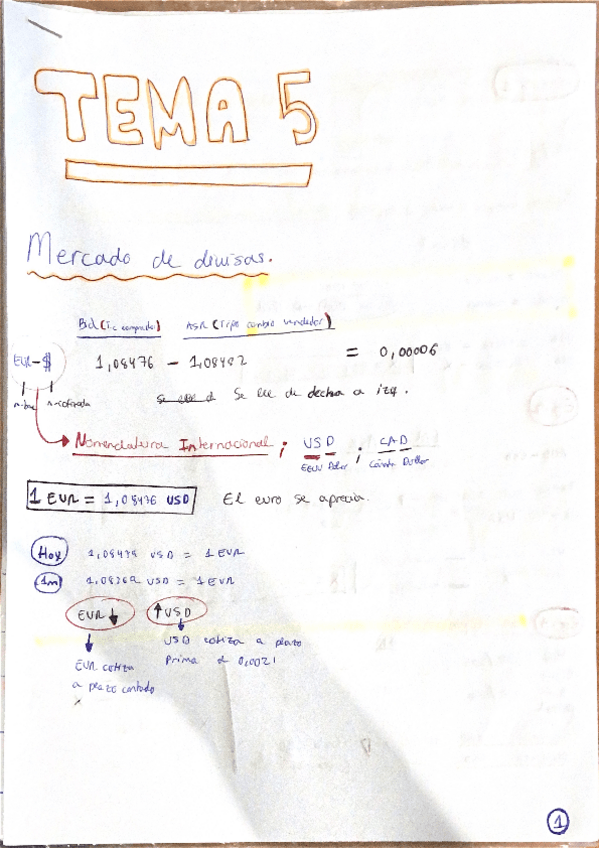 TEMA 5
Mercado de divisas.
Bid (T.c comprador) ASK (Tipo cambio vendedor)
EUR-$ 1,08476 - 1,08482 = 0,00006
Se lee de decha a izq.
Nomenclatura Internacional; USD ; CAD
EEUU Dolar Canada Dollar
1 EUR = 1,08476 USD El euro se aprecia.
Hoy 1,08479 USD = 1 EUR
1m 1,08269 USD = 1 EUR
EUR ↓ ↑ USD
USD cotiza a plazo
Prima d 0,0021
EUR cotiza
a plazo contado
1